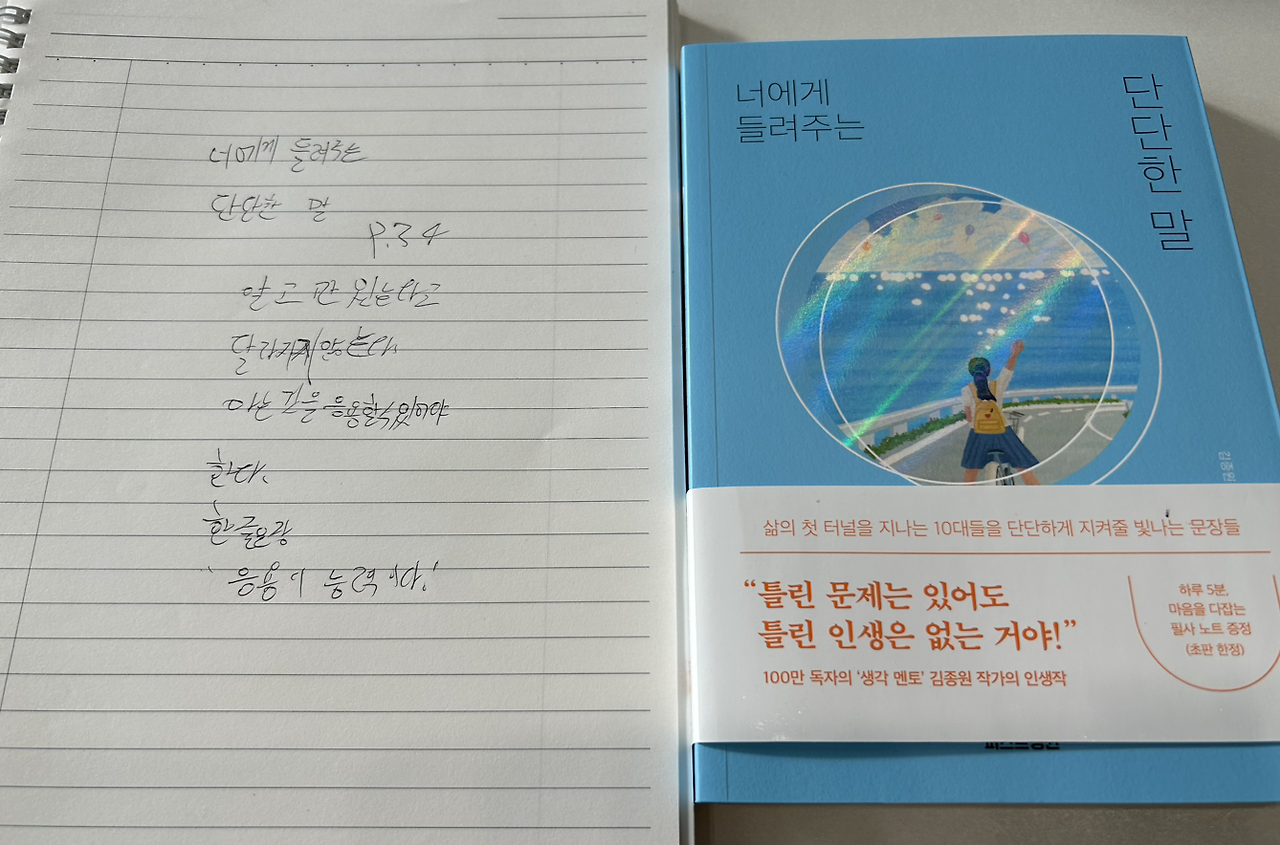 너에게 들려주는
단단한 말
P.34
알고만 있는다고
달라지지 않는다.
아는 것을 응용할 수 있어야
한다.
한 줄 요약
"응용이 능력이다."
너에게
들려주는
단단한 말
김종원
삶의 첫 터널을 지나는 10대들을 단단하게 지켜줄 빛나는 문장들
“틀린 문제는 있어도
틀린 인생은 없는 거야!”
100만 독자의 ‘생각 멘토’ 김종원 작가의 인생작
하루 5분,
마음을 다잡는
필사 노트 증정
(초판 한정)